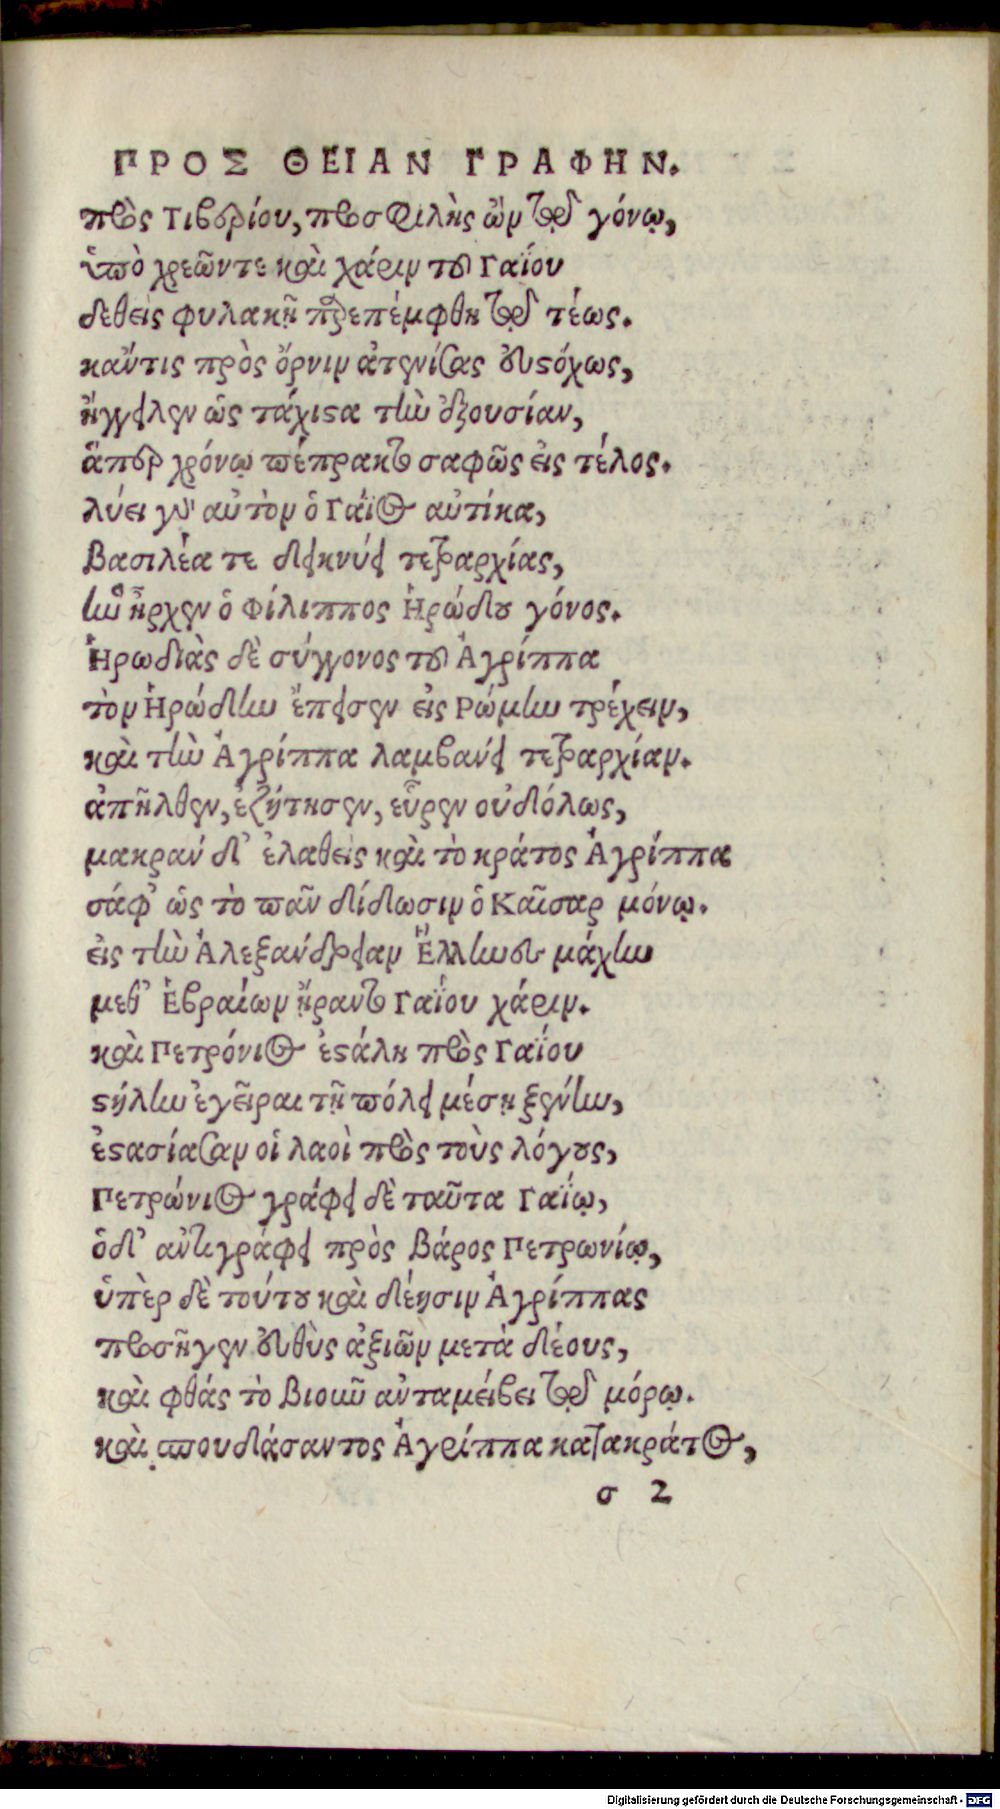 ΠΡΟΣ ΘΕΙΑΝ ΓΡΑΦΗΝ.
πρὸς Τιβερίου, προσφιλὴς ὢν τῷ γόνῳ,
ὑπὸ χρεῶν τε καὶ χάριν τοῦ Γαΐου
δεθεὶς φυλακῇ παρεπέμφθη τῷ τέως.
καὔτις πρὸς ὄρνιν ἀτενίσας εὐστόχως,
ἤγγειλεν ὡς τάχιστα τὴν ἐξουσίαν,
ἅπερ χρόνῳ πέπρακτο σαφῶς εἰς τέλος.
λύει γοῦν αὐτὸν ὁ Γάϊος αὐτίκα,
βασιλέα τε δεικνύει τετραρχίας,
ἣν ἦρχεν ὁ Φίλιππος Ἡρώδου γόνος.
Ἡρωδιὰς δὲ σύγγονος τοῦ Ἀγρίππα
τὸν Ἡρώδην ἔπεισεν εἰς Ρώμην τρέχειν,
καὶ τὴν Ἀγρίππα λαμβανει τετραρχίαν.
ἀπῆλθεν, ἐζήτησεν, εὗρεν οὐδόλως,
μακρὰν δ' ἐλαθεὶς καὶ τὸ κράτος Ἀγρίππα
σάφ' ὡς τὸ πᾶν δίδωσιν ὁ Καῖσαρ μόνῳ.
εἰς τὴν Ἀλεξανδρειαν Ἕλλησι μάχην
μεθ' Ἑβραίων ᾔραντο Γαΐου χάριν.
καὶ Πετρόνιος ἐστάλη πρὸς Γαΐου
στήλην ἐγεῖραι τῇ πόλει μέσῃ ξενην,
ἐστασίασαν οἱ λαοὶ πρὸς τοὺς λόγους,
Πετρώνιος γράφει δὲ ταῦτα Γαΐῳ,
ὁ δ' αντιγράφει πρὸς βάρος Πετρωνίῳ,
ὑπὲρ δὲ τούτου καὶ δέησιν Ἀγρίππας
προσῆγεν εὐθὺς ἀξιῶν μετὰ δέους,
καὶ φθάς τὸ βιοῦν αὐταμείβει τῷ μόρῳ.
καὶ σπουδάσαντος Ἀγρίππα κατακράτος,
σ 2
Digitalisierung gefördert durch die Deutsche Forschungsgemeinschaft - DFG